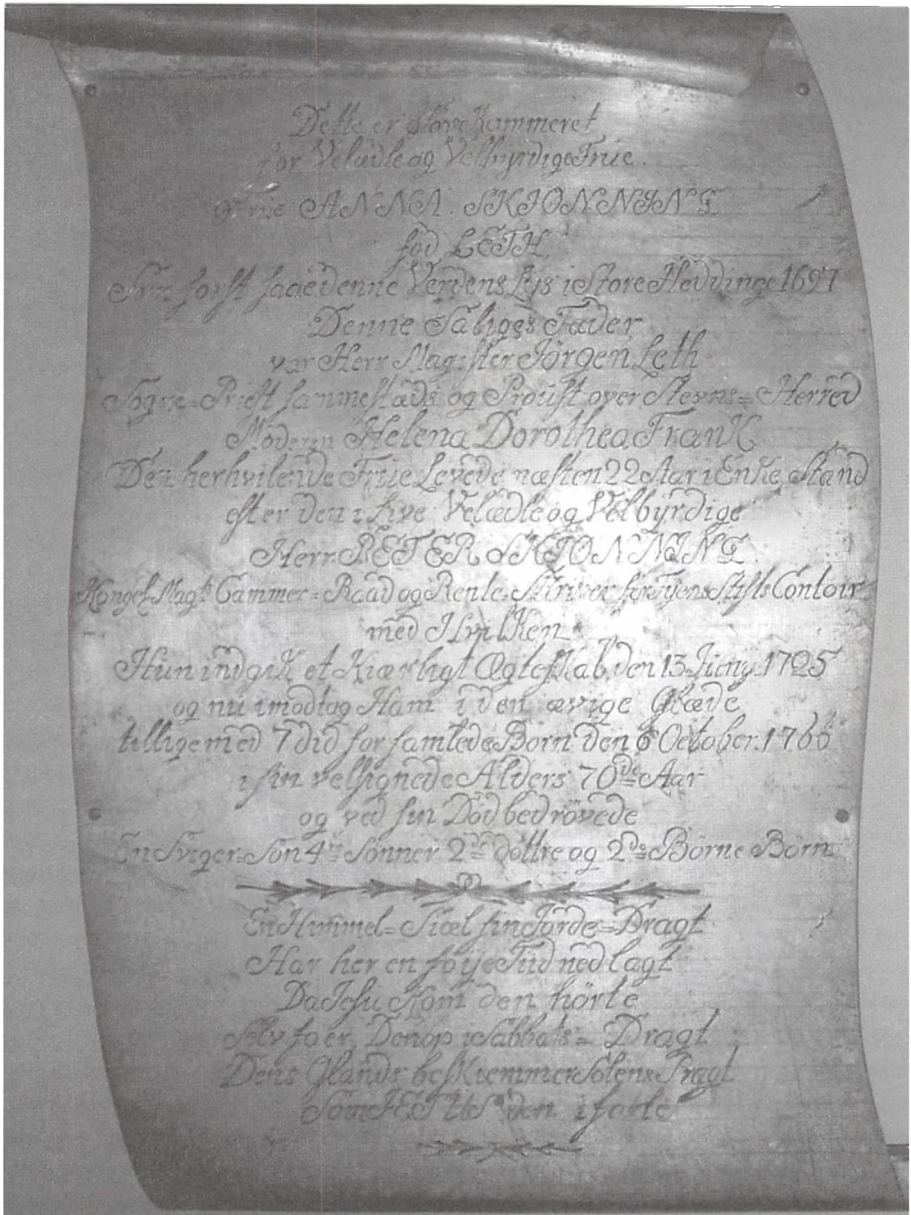 Dette er Sovekammeret
for Velædle og Velbyrdige Frue
Frue ANNA SKIONNING
fød LETH
Som først saae denne Verdens Lys i Store Heddinge 1697
Denne Saliges Fader
var Herr Magister Jörgen Leth
Sogne=Priest sammestæds og Proust over Stevns=Herred
Moderen Helena Dorothea Frank
Den herhvilende Frue Levede næsten 22 Aar i Enke Stand
efter den i Live Velædle og Velbyrdige
Herr PETER SKIONNING
Kongel. Magts Cammer=Raad og Rente-Skriver for Fyens Stifts Contoir
med Hvilken
Hun indgik et Kiærligt Ægteskab den 13 Juny 1725
og nu imodtog Ham i den ævige Glæde
tillige med 7 did forsamlede Börn den 6 October 1766
i sin velsignede Alders 70de Aar
og ved sin Död bedrövede
En Sviger-Sön 4re Sönner 2de döttre og 2de Börne Börn
En Himmel=Siæl sin Jorde=Dragt
Har her en föye Tiid nedlagt
Da Jesu Kom den hörte
Selv faer Den op i Sabbats=Dragt
Dens Glands beskiemmer Solens Pragt
Som JESUS den iförte